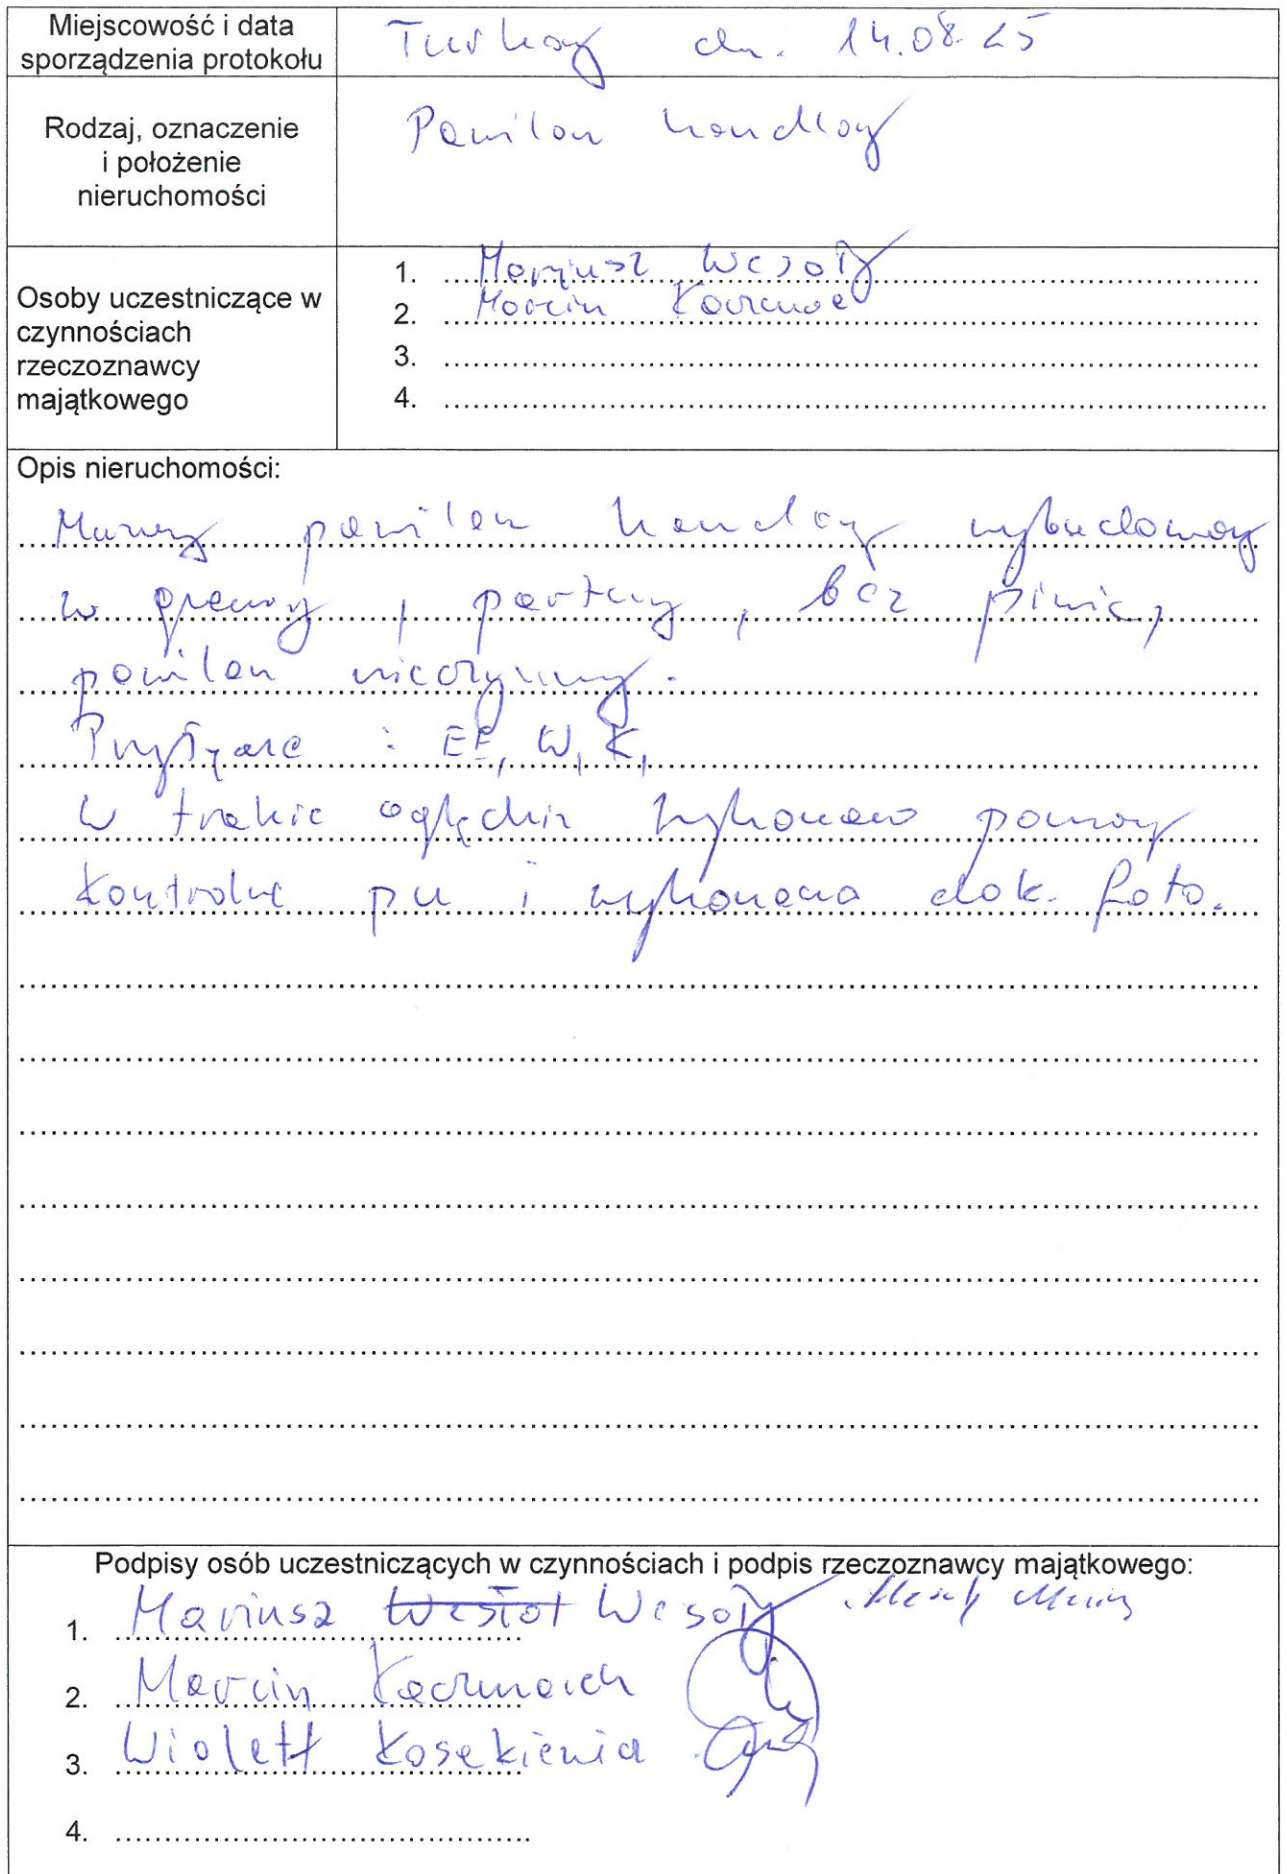 Miejscowość i data
sporządzenia protokołu
dn. 14.08.25
Rodzaj, oznaczenie
i położenie
nieruchomości
Pawilon handlowy
Osoby uczestniczące w
czynnościach
rzeczoznawcy
majątkowego
1. Mariusz Wesoły
2. Marcin
3.
4.
Opis nieruchomości:
pawilon handlowy wybudowany
w , bez piwnic,
pawilon nieczynny.
Przyłącze : EE, W, K,
W trakcie oględzin wykonano pomiary
kontrolne pu i wykonano dok. foto.
Podpisy osób uczestniczących w czynnościach i podpis rzeczoznawcy majątkowego:
1. Mariusz Wesoły
2. Marcin
3. Wiolett
4.